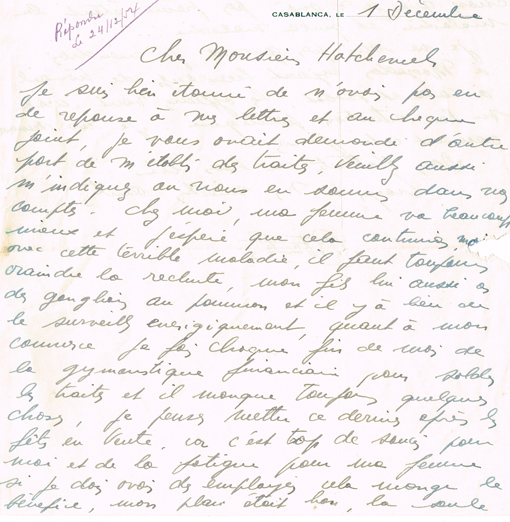 Répondu
le 24/12/54
CASABLANCA, LE 1 Décembre
Cher Monsieur Hatchewel
Je suis bien étonné de n'avoir pas eu
de reponse à ma lettre et au cheque
joint, je vous avait demandé d'autre
part de m'établir des traites, veuillez aussi
m'indiquer ou nous en sommes dans nos
comptes. Chez moi, ma femme va beaucoup
mieux et j'espère que cela continuera, mais
avec cette terrible maladie, il faut toujours
craindre la rechute, mon fils lui aussi a
des ganglions au poumon et il y a lieu de
le surveiller energiquement, quant à mon
commerce je fais chaque fin de mois de
la gymnastique financiaire pour solder
les traites et il manque toujours quelque
chose, je pense mettre ce dernier après les
fêtes en vente, car c'est trop de soucis pour
moi et de la fatigue pour ma femme
si je dois avoir des employés cela mange le
bénéfice, mon plan était bon, la seule